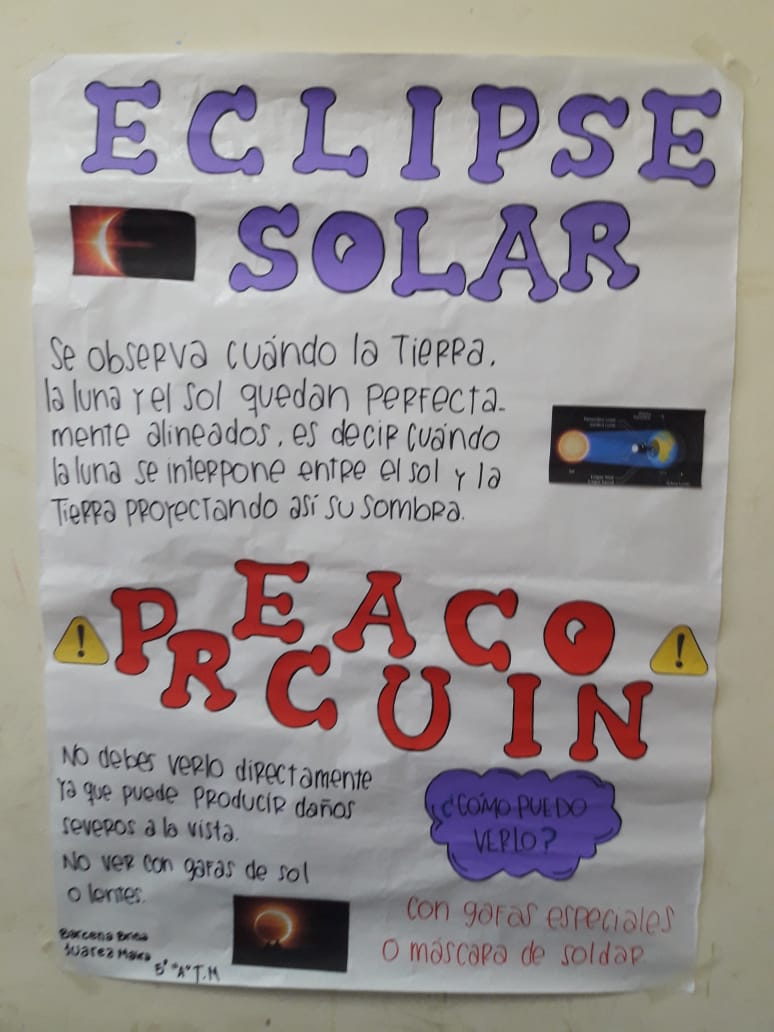 ECLIPSE
SOLAR
Se observa cuándo la Tierra,
la luna y el sol quedan perfecta-
mente alineados, es decir cuándo
la luna se interpone entre el sol y la
Tierra proyectando así su sombra.
! PRECAUCION !
No debes verlo directamente
ya que puede producir daños
severos a la vista.
No ver con gafas de sol
o lentes.
¿CÓMO PUEDO
VERLO?
con gafas especiales
o máscara de soldar
Barcena
Suarez
5° "A" T.M